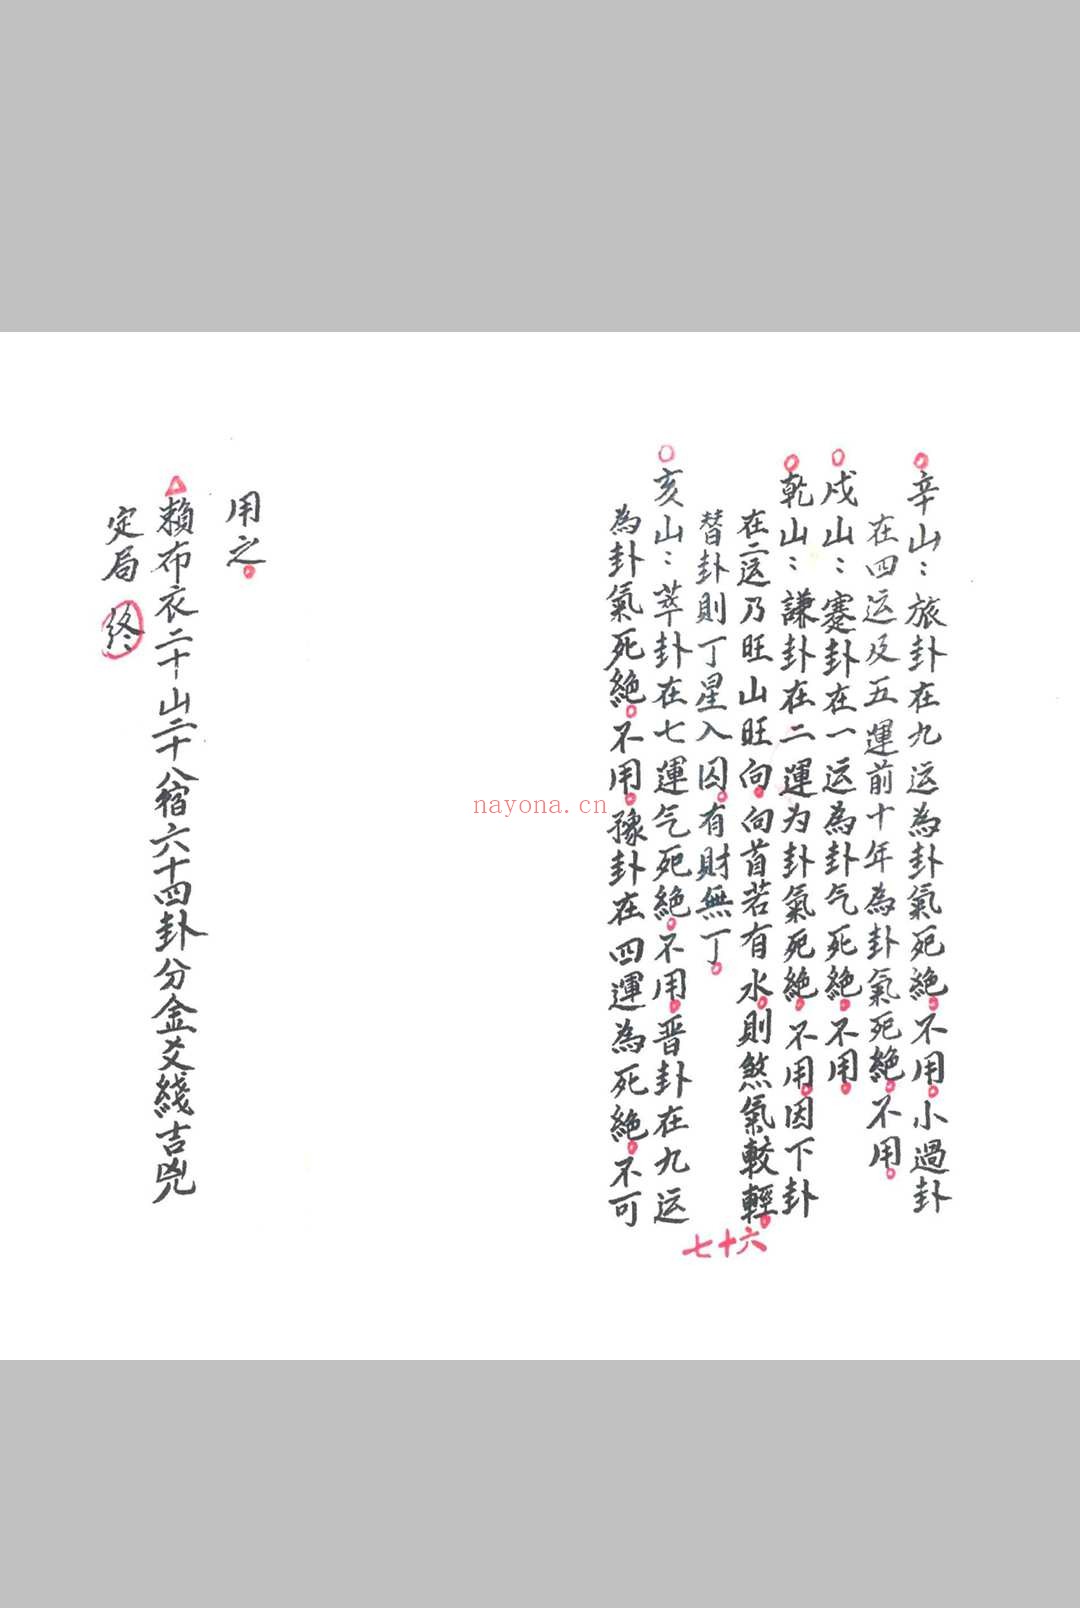 辛山：旅卦在九运為卦氣死絕。不用。小過卦
在四运及五運前十年為卦氣死絕。不用。
戌山：蹇卦在一运為卦气死絕。不用。
乾山：謙卦在二運为卦氣死絕。不用。因下卦
在二运乃旺山旺向。向首若有水。則煞氣較輕。
替卦則丁星入囚。有財無丁。
亥山：萃卦在七運气死絕。不用。晋卦在九运
為卦氣死絕。不用。豫卦在四運為死絕。不可
七十六
用之。
賴布衣二十山二十八宿六十四卦分金爻綫吉兇
定局 终
nayona.cn